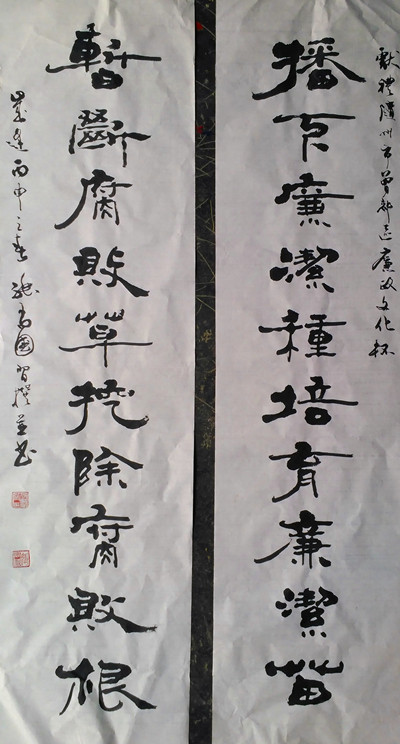 獻禮隨州市曾都區廉政文化杯
播下廉潔種培育廉潔苗
暫斷腐敗草挖除腐敗根
歲逢丙申之春國撰並書